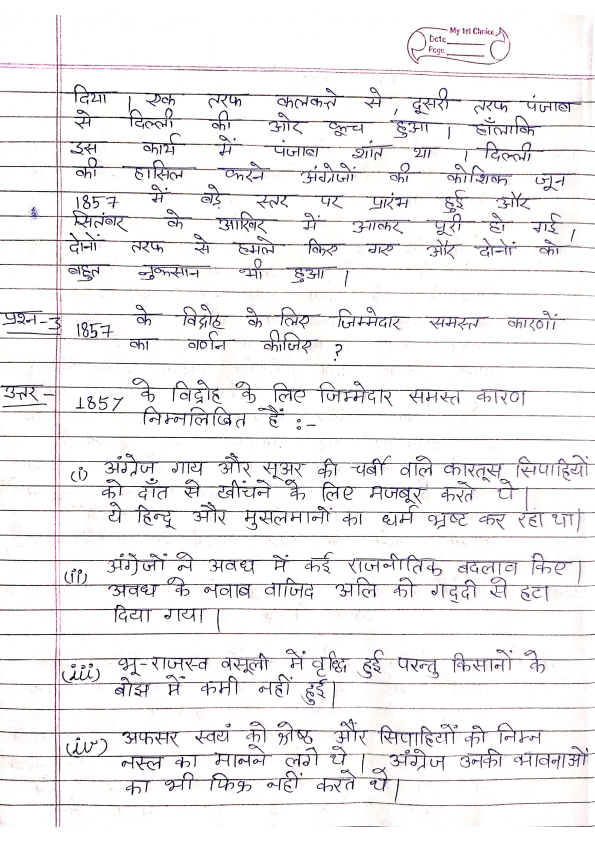 My 1st Choice
Date
Page
दिया । एक तरफ कलकत्ते से , दूसरी तरफ पंजाब
से दिल्ली की ओर कूच हुआ । हाँलाकि
इस कार्य में पंजाब शांत था । दिल्ली
को हासिल करने अंग्रेजों की कोशिक जून
1857 में बड़े स्तर पर प्रारंभ हुई और
सितंबर के आखिर में आकर पूरी हो गई ।
दोनों तरफ से हमले किए गए और दोनों को
बहुत नुकसान भी हुआ ।
प्रश्न-3 1857 के विद्रोह के लिए जिम्मेदार समस्त कारणों
का वर्णन कीजिए ?
उत्तर - 1857 के विद्रोह के लिए जिम्मेदार समस्त कारण
निम्नलिखित हैं :-
(i) अंग्रेज गाय और सूअर की चर्बी वाले कारतूस सिपाहियों
को दाँत से खींचने के लिए मजबूर करते थे ।
ये हिन्दू और मुसलमानों का धर्म भ्रष्ट कर रहा था।
(ii) अंग्रेजों ने अवध में कई राजनीतिक बदलाव किए ।
अवध के नवाब वाजिद अलि को गद्दी से हटा
दिया गया ।
(iii) भू-राजस्व वसूली में वृद्धि हुई परन्तु किसानों के
बोझ में कमी नहीं हुई।
(iv) अफसर स्वयं को श्रेष्ठ और सिपाहियों को निम्न
नस्ल का मानने लगे थे । अंग्रेज उनकी भावनाओं
का भी फिक्र नहीं करते थे।